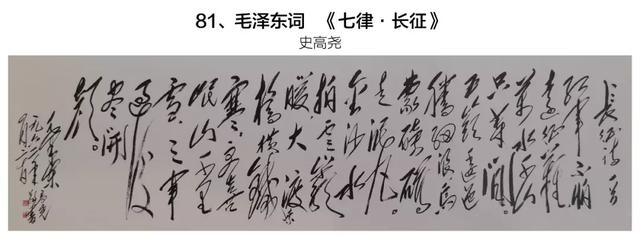 81、毛泽东词 《七律·长征》
史高尧
长征诗一首
红军不怕
远征难
万水千山
只等闲
五岭逶迤
腾细浪乌
蒙磅礴
走泥丸。
金沙水
拍云崖
暖大渡
桥横铁索
寒。更喜
岷山千里
雪,三军
过后
尽开
颜。
毛泽东
一九六二年